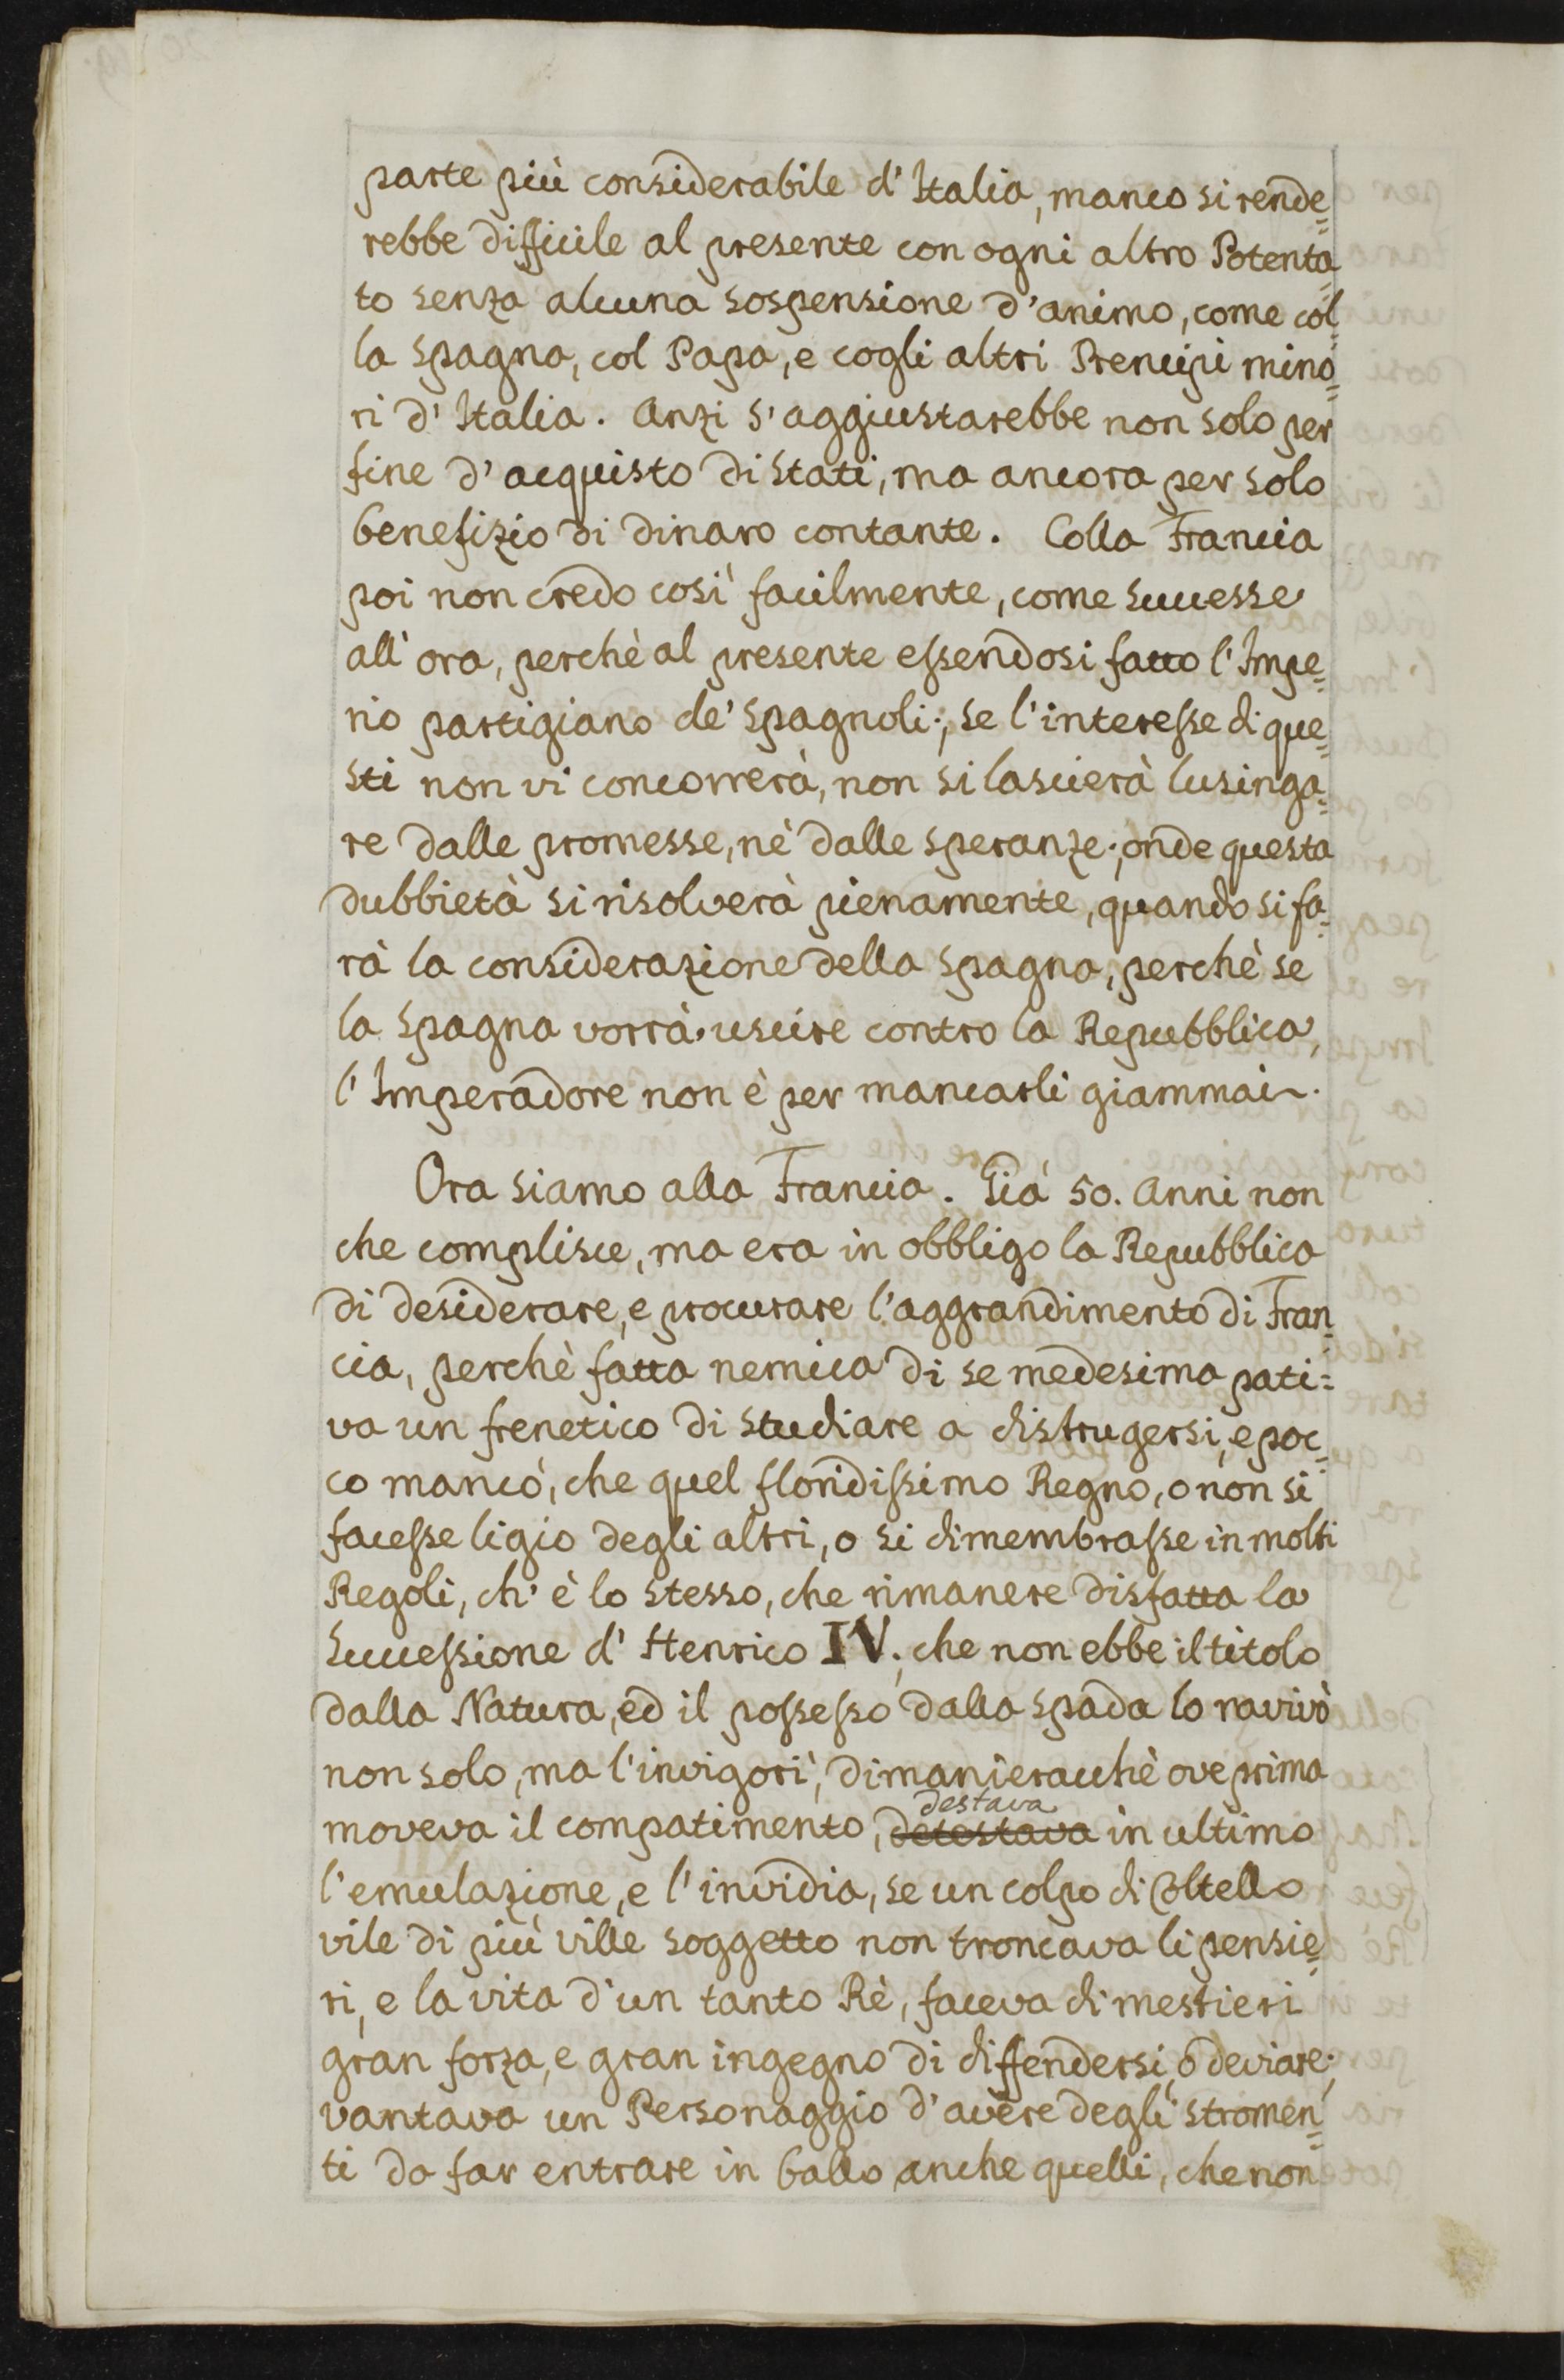 parte più considerabile d' Italia, manco si rende=
rebbe difficile al presente con ogni altro Potenta=
to senza alcuna sospensione d'animo, come col=
la Spagna, col Papa, e cogli altri Prencipi mino=
ri d' Italia. Anzi s'aggiustarebbe non solo per
fine d' acquisto di Stati, ma ancora per solo
benefizio di dinaro contante. Colla Francia
poi non credo così facilmente, come successe
all' ora, perchè al presente essendosi fatto l' Impe=
rio partigiano de' Spagnoli; se l'interesse di que=
sti non vi concorrerà, non si lascierà lusinga=
re dalle promesse, nè dalle speranze; onde questa
dubbietà si risolverà pienamente, quando si fa=
rà la considerazione della Spagna, perchè se
la Spagna vorrà uscire contro la Repubblica,
l' Imperadore non è per mancarli giammai.
Ora siamo alla Francia. Già 50. Anni non
che complisce, ma era in obbligo la Repubblica
di desiderare, e procurare l'aggrandimento di Fran=
cia, perchè fatta nemica di se medesima pati=
va un frenetico di studiare a distrugersi, e poc=
co mancò, che quel floridissimo Regno, o non si
facesse ligio degli altri, o si dimembrasse in molti
Regoli, ch' è lo stesso, che rimanere disfatta la
Successione d' Henrico IV; che non ebbe il titolo
dalla Natura, ed il possesso dalla spada lo ravivò
non solo, ma l'invigorì, dimanieracchè ove prima
destava
moveva il compatimento, detestava in ultimo
l'emulazione, e l'invidia, se un colpo di Coltello
vile di più ville soggetto non troncava li pensie=
ri, e la vita d'un tanto Rè, faceva di mestieri
gran forza, e gran ingegno di diffendersi, o deviare;
vantava un Personaggio d' avere degli stromen=
ti da far entrare in ballo anche quelli, che non